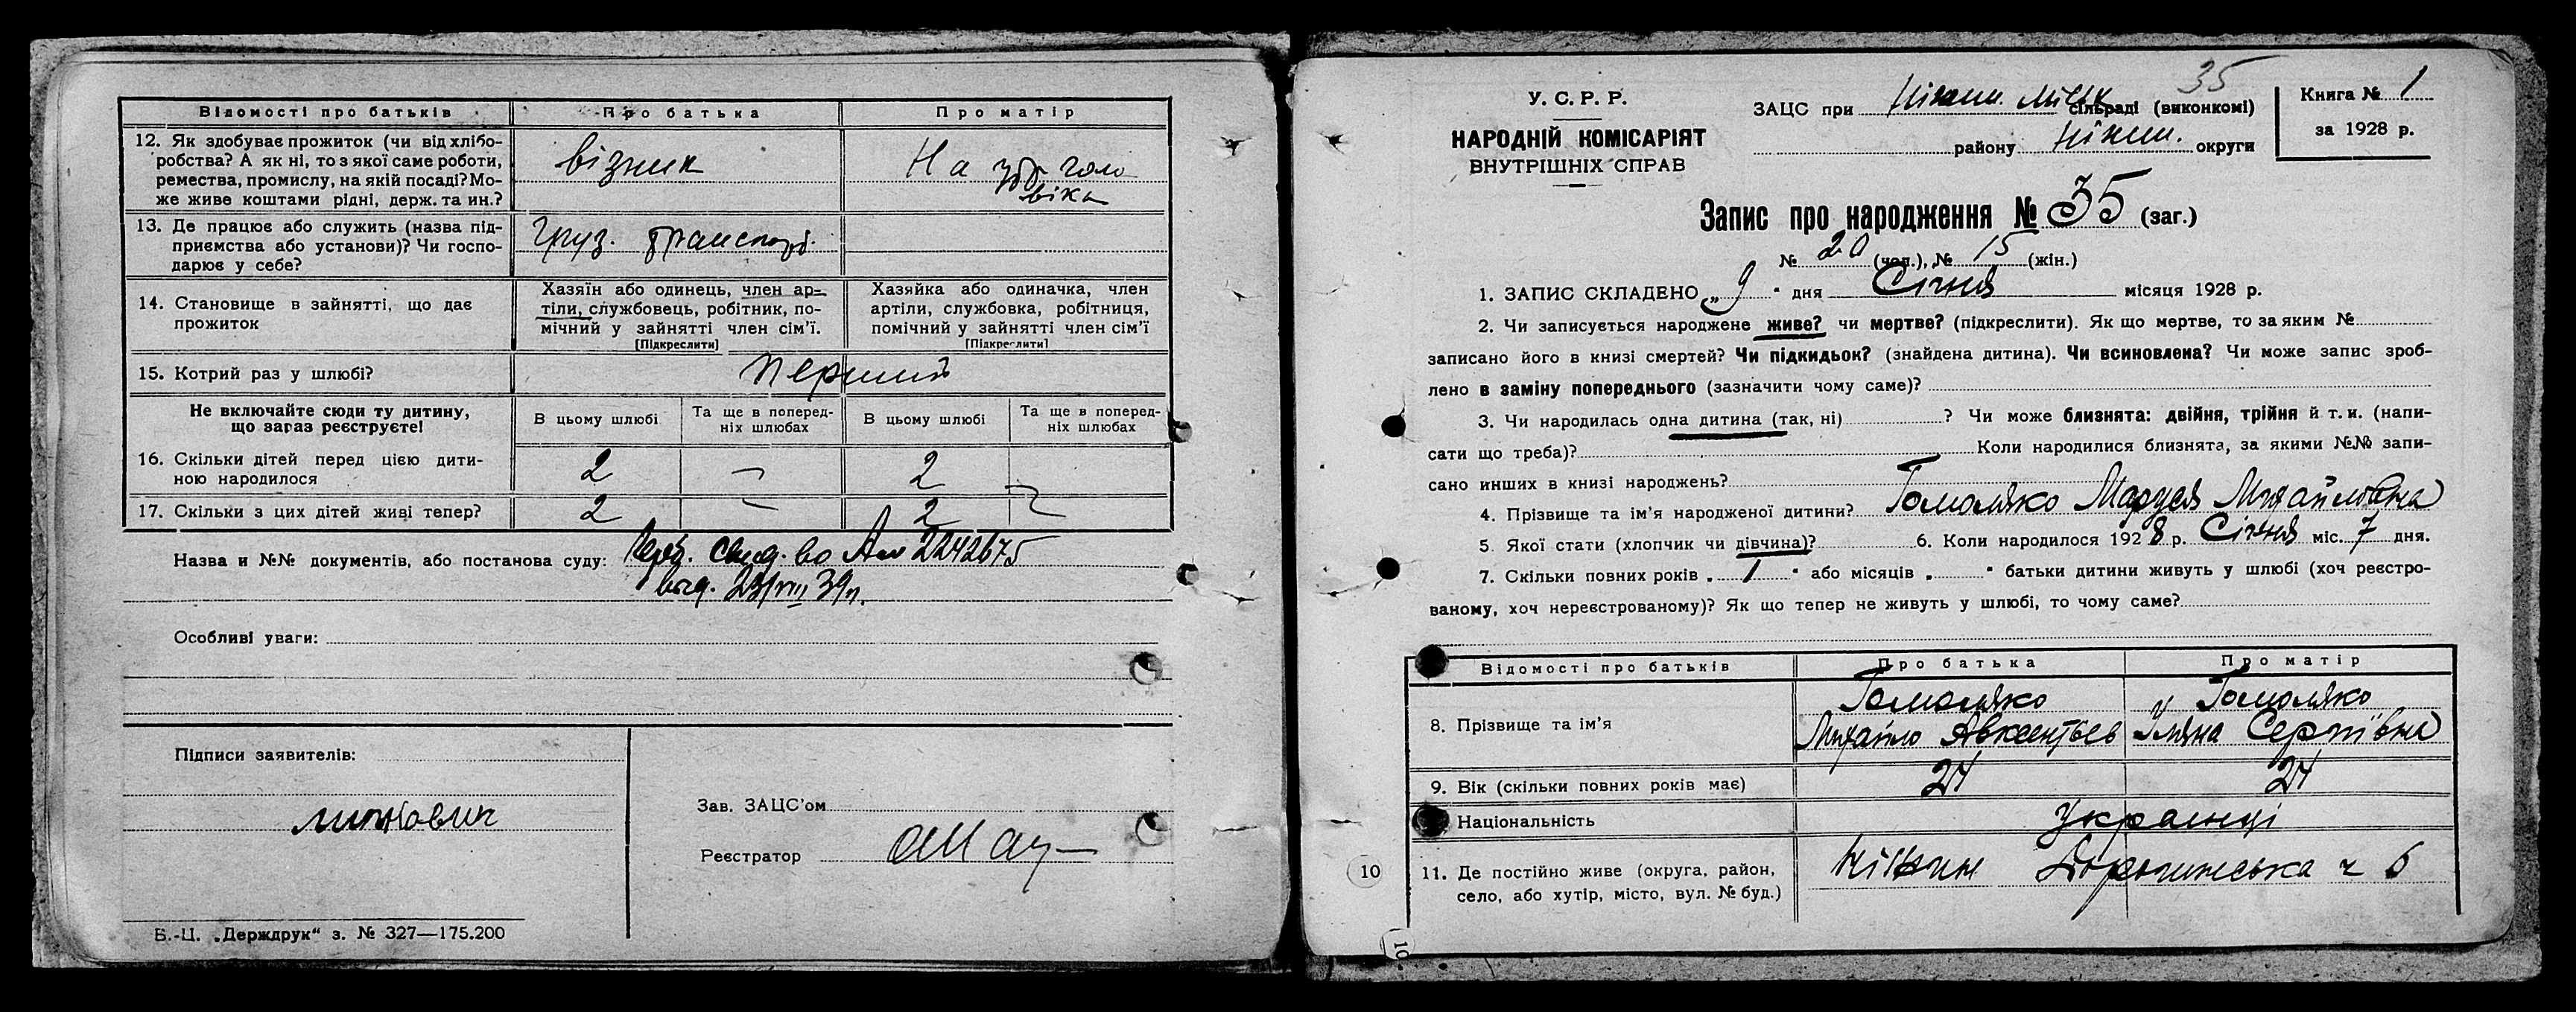 Відомості про батьків Про батька Про матір
12. Як здобуває прожиток (чи від хлібо-
робства? А як ні, то з якої саме роботи,
ремества, промислу, на якій посаді? Мо-
же живе коштами рідні, держ. та ин.?
візник
На
чоло
віка
13. Де працює або служить (назва під-
приємства або установи)? Чи госпо-
дарює у себе?
Груз. транспорт.
14. Становище в зайнятті, що дає
прожиток
Хазяїн або одинець, член ар-
тіли, службовець, робітник, по-
мічний у зайнятті член сім'ї.
[Підкреслити]
Хазяйка або одиначка, член
артіли, службовка, робітниця,
помічний у зайнятті член сім'ї
[Підкреслити]
15. Котрий раз у шлюбі? перший
Не включайте сюди ту дитину,
що зараз реєструєте!
В цьому шлюбі
Та ще в поперед-
ніх шлюбах
В цьому шлюбі
Та ще в поперед-
ніх шлюбах
16. Скільки дітей перед цією дити-
ною народилося
2 – 2 –
17. Скільки з цих дітей живі тепер? 2 – 2 –
Назва и №№ документів, або постанова суду: свид-во 2242675
выд. 23/VIII 39
Особливі уваги:
Підписи заявителів:
Зав. ЗАЦС'ом
Реєстратор
Б.-Ц. „Держдрук" з. № 327—175.200
35
У. С. Р. Р.
НАРОДНІЙ КОМІСАРІЯТ
ВНУТРІШНІХ СПРАВ
ЗАЦС при Ніжин. міськ сільраді (виконкомі)
району Ніжин. округи
Книга № 1
за 1928 р.
Запис про народження № 35 (заг.)
№ 20 (чол.), № 15 (жін.)
1. ЗАПИС СКЛАДЕНО „9" дня Січня місяця 1928 р.
2. Чи записується народжене живе? чи мертве? (підкреслити). Як що мертве, то за яким №
записано його в книзі смертей? Чи підкидьок? (знайдена дитина). Чи всиновлена? Чи може запис зроб-
лено в заміну попереднього (зазначити чому саме)?
3. Чи народилась одна дитина (так, ні) ? Чи може близнята: двійня, трійня й т. и. (напи-
сати що треба)? Коли народилися близнята, за якими №№ запи-
сано инших в книзі народжень?
4. Прізвище та ім'я народженої дитини? Гомоляко Михайлівна
5. Якої стати (хлопчик чи дівчина)? 6. Коли народилося 1928 р. Січня міс. 7 дня.
7. Скільки повних років „ " або місяців „ " батьки дитини живуть у шлюбі (хоч реєстро-
ваному, хоч нереєстрованому)? Як що тепер не живуть у шлюбі, то чому саме?
Відомості про батьків Про батька Про матір
8. Прізвище та ім'я
Гомоляко
Михайло Авксентьев
Гомоляко
Уляна Сергіївна
9. Вік (скільки повних років має) 27 27
Національність Українці
11. Де постійно живе (округа, район,
село, або хутір, місто, вул. № буд.)
Ніжин ч 6
10
10